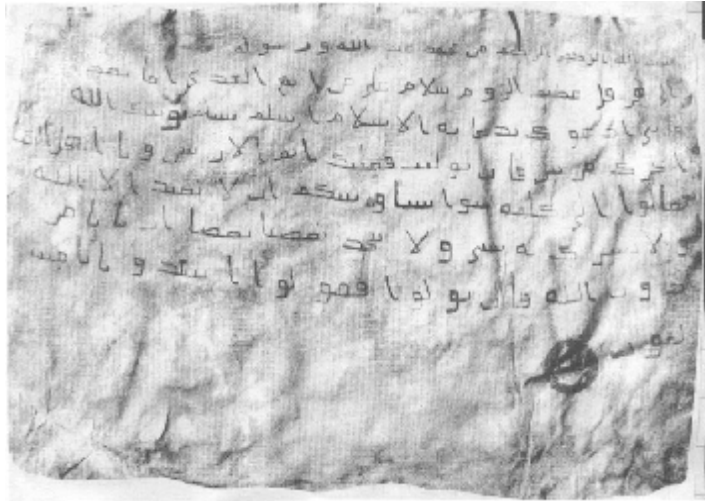 بسم الله الرحمن الرحيم من محمد عبد الله ورسوله
الى هرقل عظيم الروم سلام على من اتبع الهدى اما بعد
فانى ادعوك بدعاية الاسلام اسلم تسلم يوتك الله
اجرك مرتين فان توليت فعليك اثم الاريسين ويا اهل الكتاب
تعالوا الى كلمة سوا بيننا وبينكم ان لا نعبد الا الله
ولا نشرك به شيا ولا يتخذ بعضنا بعضا اربابا من
دون الله فان تولوا فقولوا اشهدوا بانا مسلمون